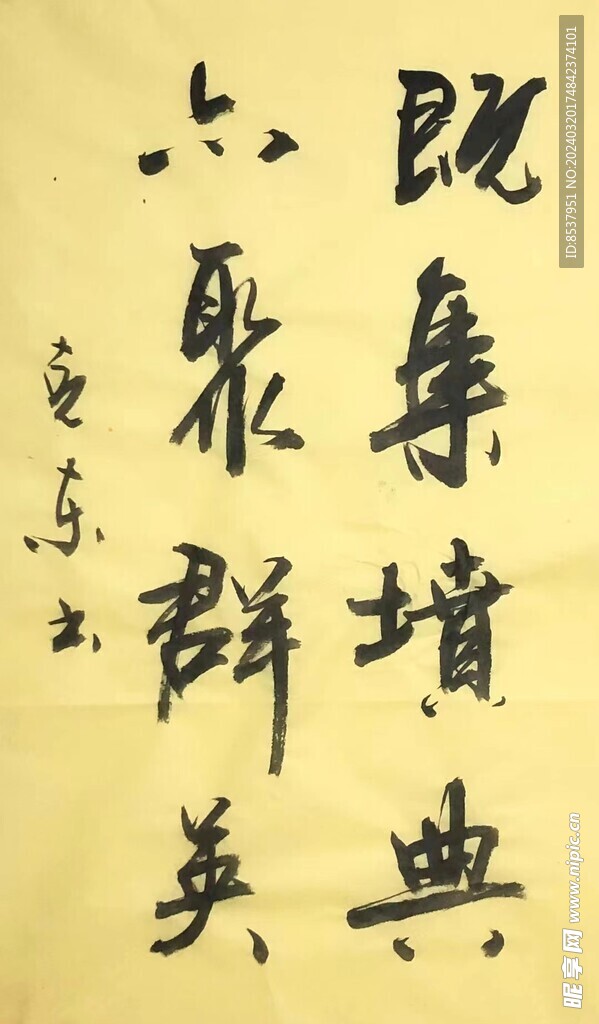 既集墳典
亦聚群英
克东书
ID:8537951 NO:20240320174842374101
昵享网 www.nipic.cn